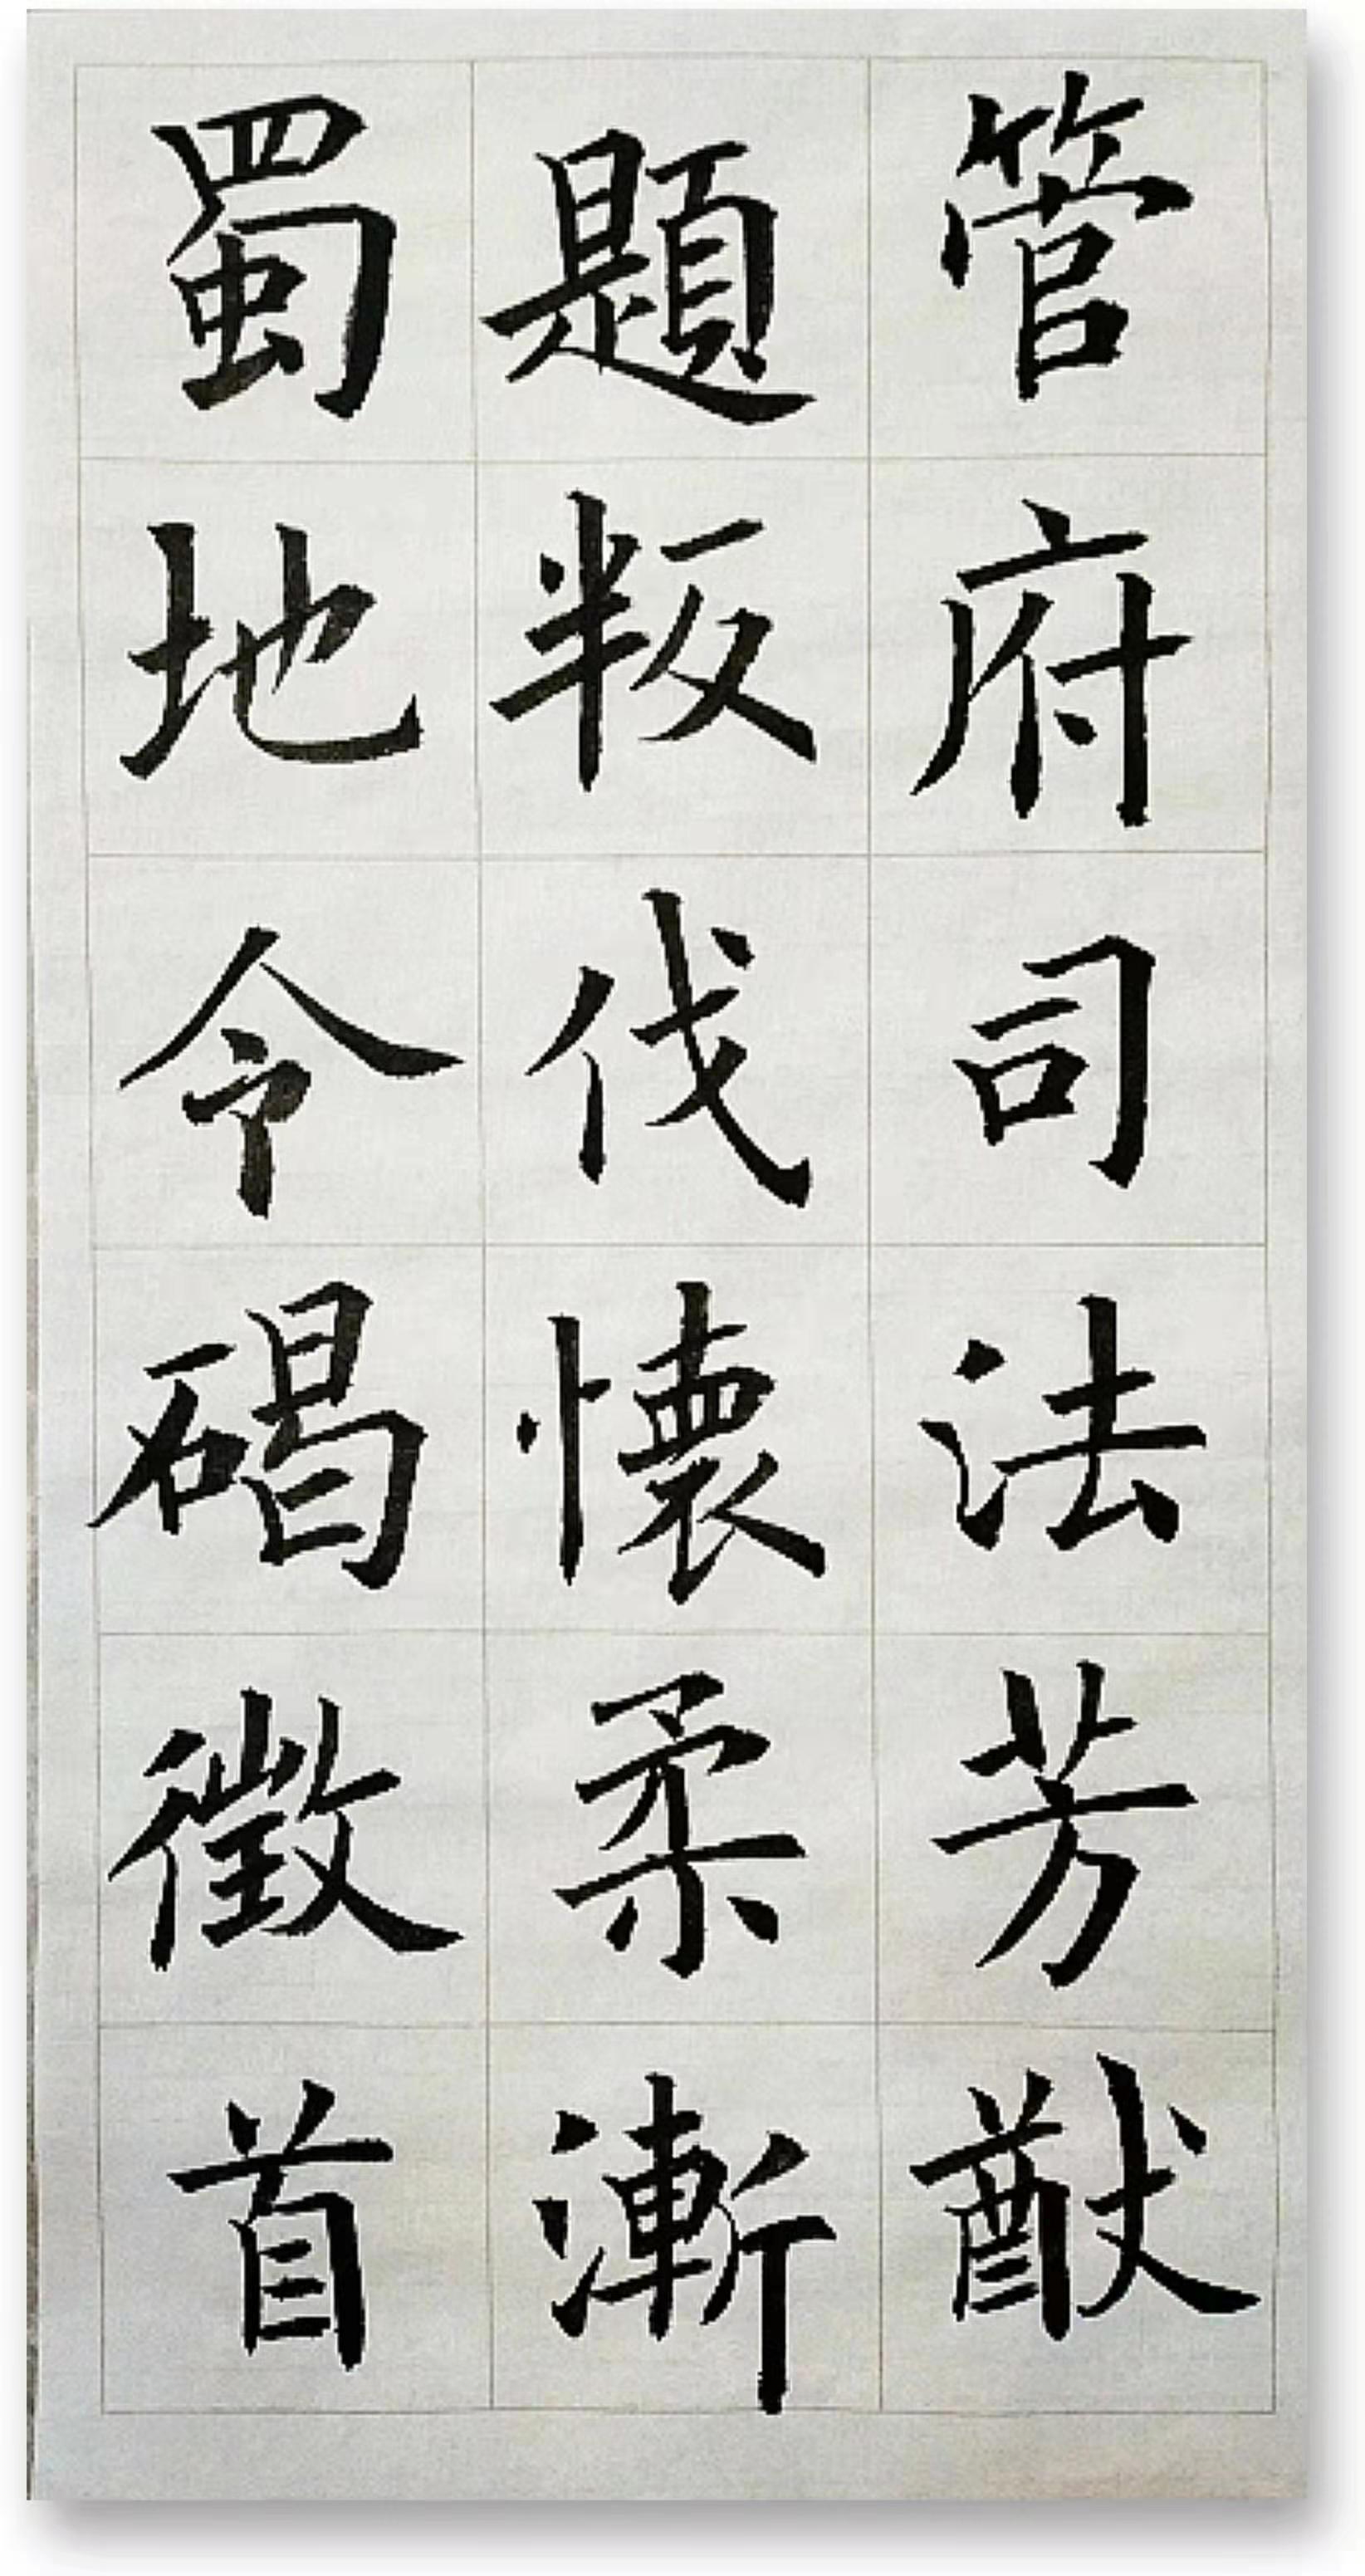 管府司法芳猷
題叛伐懷柔漸
蜀地令碣徵首